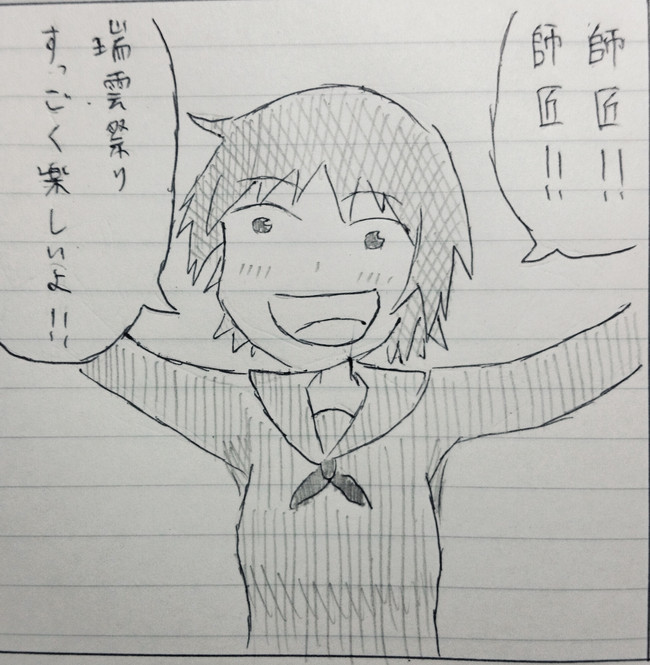 師匠!!
師匠!!
瑞雲祭り
すっごく楽しいよ!!